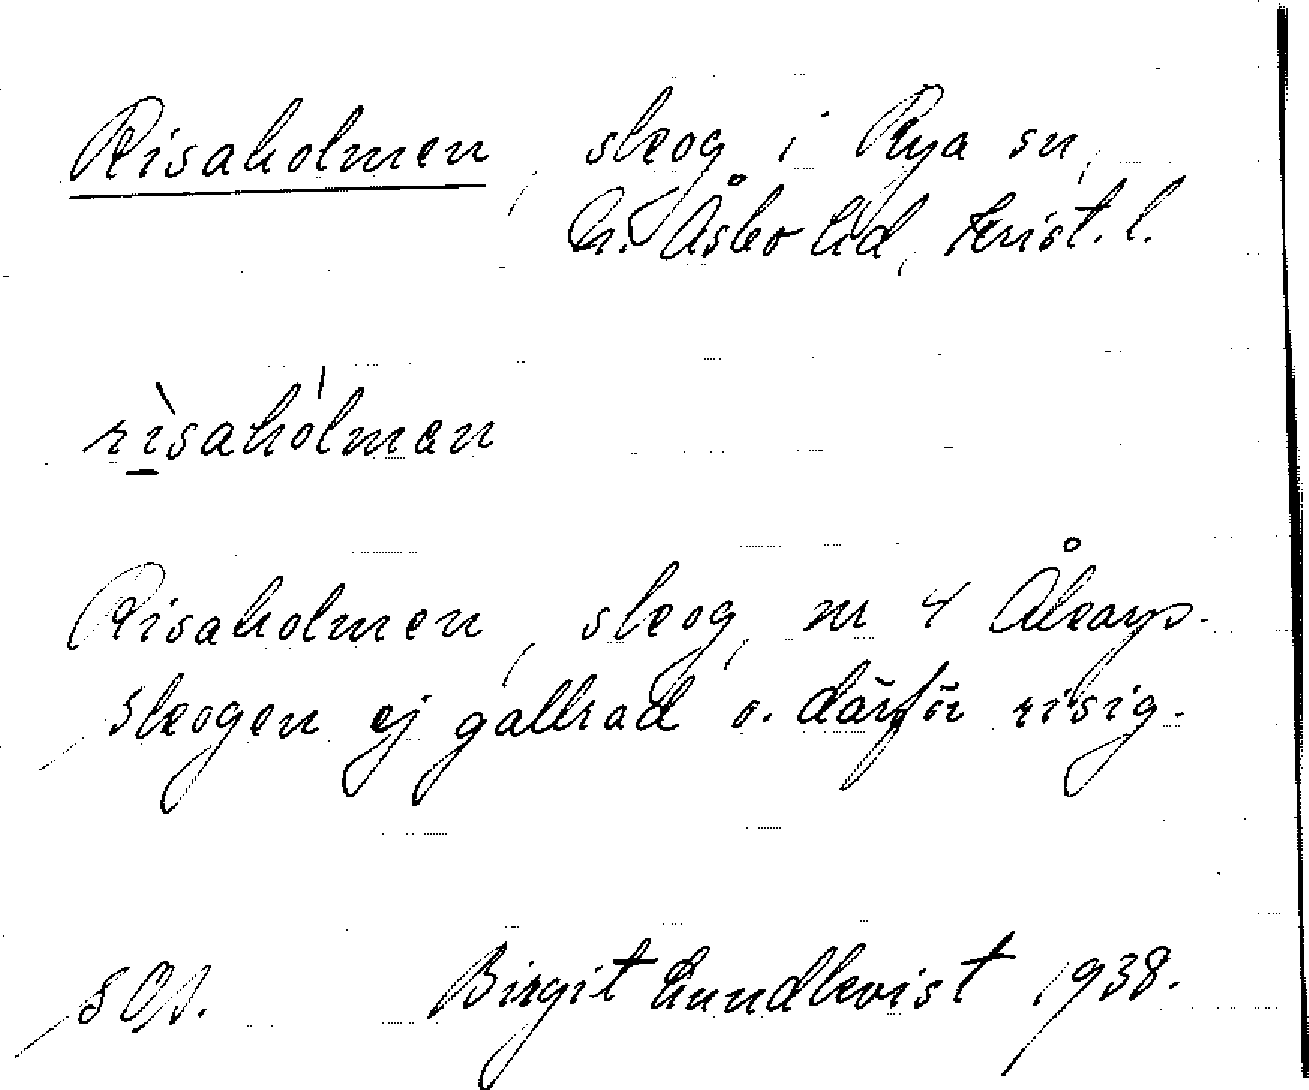 Risaholmen, skog i Rya sn,
N. Åsbo hd, Krist. l.
rìsahólmen
Risaholmen, skog, nr 4 Åkarp.
Skogen ej gallrad o. därför risig.
Birgit Lundkvist 1938.